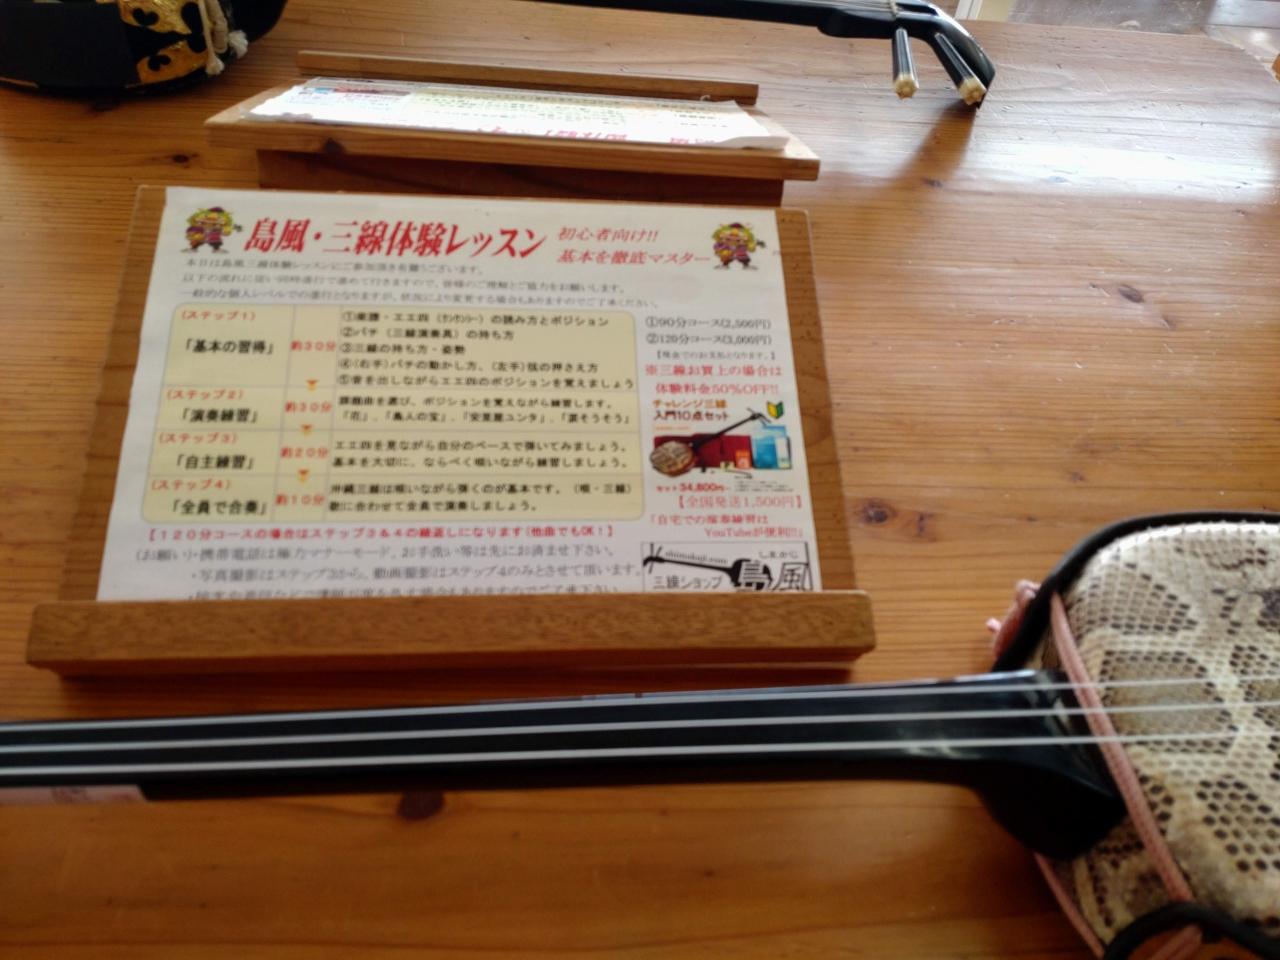 島風・三線体験レッスン
初心者向け!!
基本を徹底マスター
本日は島風三線体験レッスンにご参加頂き有難うございます。
以下の流れに従い同時進行で進めて行きますので、皆様のご理解とご協力をお願いします。
一般的な個人レベルでの進行となりますが、状況により変更する場合もありますのでご了承ください。
(ステップ1)
「基本の習得」
約30分
①楽譜・エエ四(クンクンシー)の読み方とポジション
②バチ(三線演奏具)の持ち方
③三線の持ち方・姿勢
④(右手)バチの動かし方、(左手)弦の押さえ方
⑤音を出しながらエエ四のポジションを覚えましょう
(ステップ2)
「演奏練習」
約30分
課題曲を選び、ポジションを覚えながら練習します。
「花」、「島人の宝」、「安里屋ユンタ」、「涙そうそう」
(ステップ3)
「自主練習」
約20分
エエ四を見ながら自分のペースで弾いてみましょう。
基本を大切に、ならべく唄いながら練習しましょう。
(ステップ4)
「全員で合奏」
約10分
沖縄三線は唄いながら弾くのが基本です。(唄・三線)
歌に合わせて全員で演奏しましょう。
【120分コースの場合はステップ3&4の繰返しになります(他曲でもOK!】
(お願い)・携帯電話は極力マナーモード、お手洗い等は先にお済ませ下さい。
・写真撮影はステップ3から、動画撮影はステップ4のみとさせて頂います。
①90分コース(2,500円)
②120分コース(3,000円)
【現金でのお支払となります。】
※三線お買上の場合は
体験料金50%OFF!!
チャレンジ三線
入門10点セット
セット34,800円~
【全国発送1,500円】
「自宅での演奏練習は
YouTubeが便利!!」
shimakaji.com
しまかじ
三線ショップ 島風